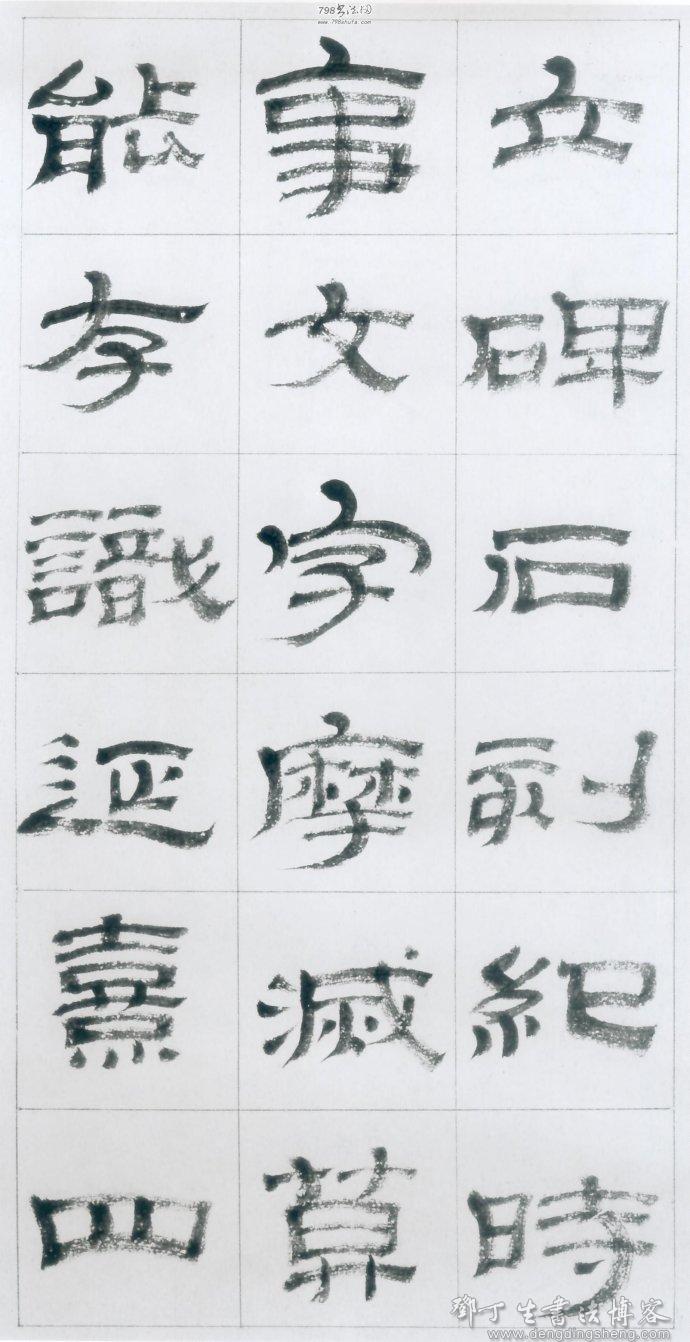 798书法网
www.798shufa.com
立碑石刻紀時
事文字摩滅莫
能存識延熹四
鄧丁生書法博客
www.dengdingsheng.com